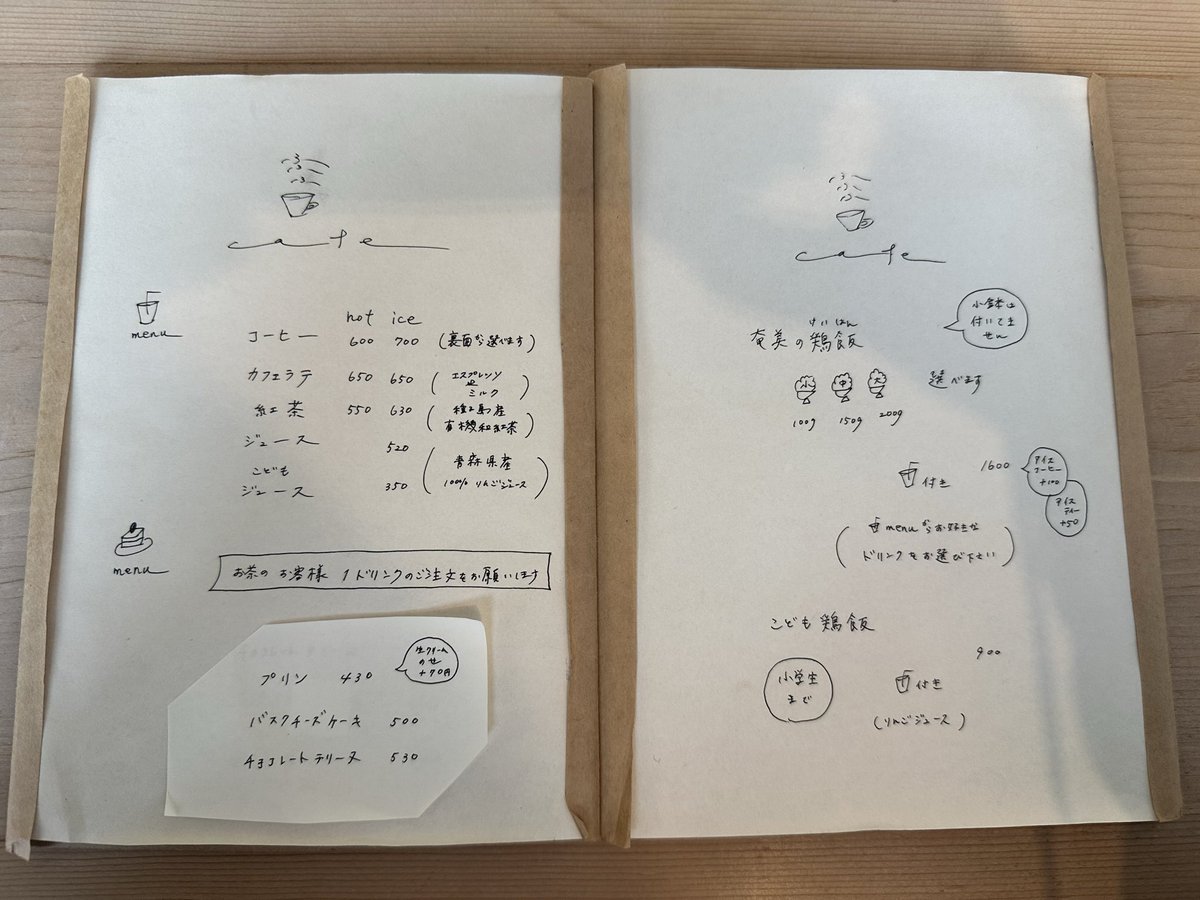 ふふふ
cafe
menu
hot ice
コーヒー 600 700 (裏面から選べます)
カフェラテ 650 650 (エスプレッソ
ミルク)
紅茶 550 630 (種子島産
有機和紅茶)
ジュース 520
(青森県産
100% りんごジュース)
こども
ジュース 350
menu
お茶のお客様 1ドリンクのご注文をお願いします
プリン 430
生クリーム
のせ
+70円
バスクチーズケーキ 500
チョコレートテリーヌ 530
ふふふ
cafe
小鉢は
付いてき
せん
けいはん
奄美の鶏飯
小 中 大 選べます
100g 150g 200g
付き 1600
アイス
コーヒー
+100
アイス
ティー
+50
(menuからお好きな
ドリンクをお選び下さい)
こども鶏飯
900
小学生
まで
付き
(りんごジュース)